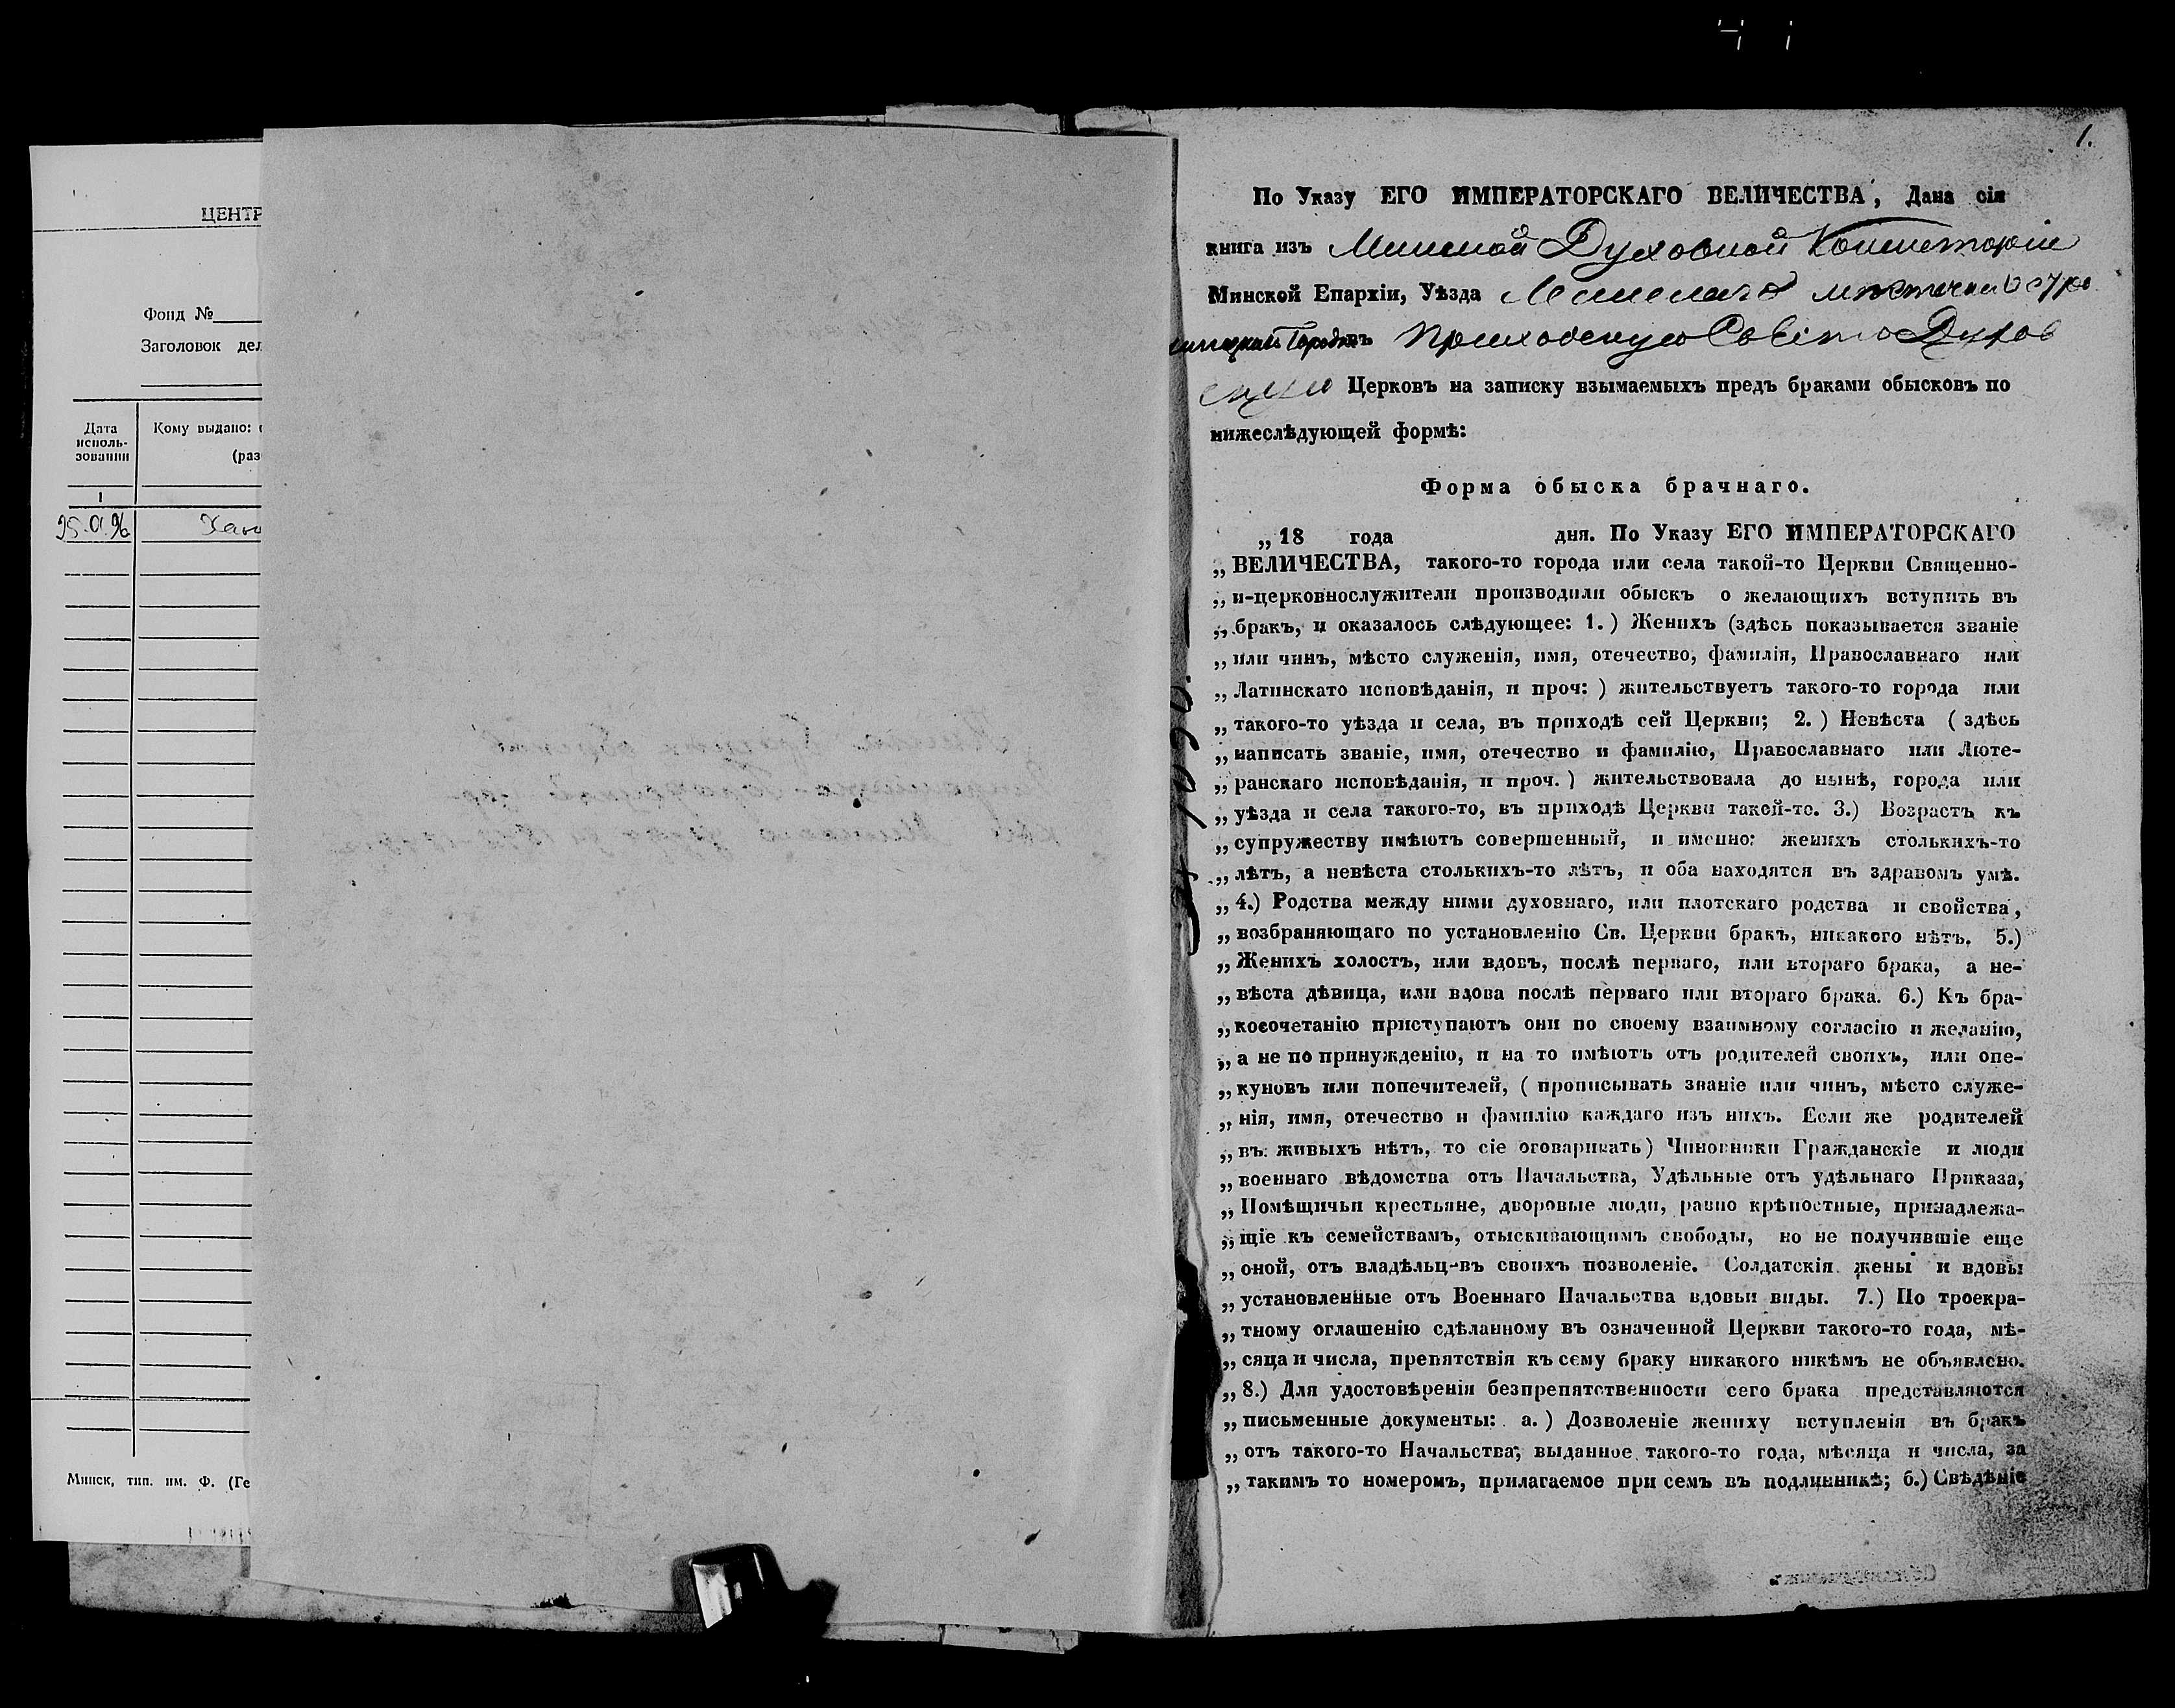 ЦЕНТР
Фонд №
Заголовок дел
Дата исполь-зовании
Кому выдано:
(раз
1
25.9.96
Минск, тип. им. Ф. (Ге
1.
По Указу ЕГО ИМПЕРАТОРСКАГО ВЕЛИЧЕСТВА, Дана сія
книга изъ Минской Духовной Консисторіи
Минской Епархіи, Уѣзда Минскаго
Городокъ Приходскую Свято Духов
скую Церковъ на записку взымаемыхъ предъ браками обысковъ по
нижеслѣдующей формѣ:
Форма обыска брачнаго.
„ 18 года дня. По Указу ЕГО ИМПЕРАТОРСКАГО
„ ВЕЛИЧЕСТВА, такого-то города или села такой-то Церкви Священно-
„ и-церковнослужители производили обыскъ о желающихъ вступить въ
„ бракъ, и оказалось слѣдующее: 1.) Женихъ (здѣсь показывается званіе
„ или чинъ, мѣсто служенія, имя, отечество, фамилія, Православнаго или
„ Латинскато исповѣданія, и проч: ) жительствуетъ такого-то города или
„ такого-то уѣзда и села, въ приходѣ сей Церкви; 2. ) Невѣста ( здѣсь
„ написать званіе, имя, отечество и фамилію, Православнаго или Люте-
„ ранскаго исповѣданія, и проч. ) жительствовала до нынѣ, города или
„ уѣзда и села такого-то, въ приходѣ Церкви такой-то. 3.) Возрастъ къ
„ супружеству имѣютъ совершенный, и именно: женихъ столькихъ-то
„ лѣтъ, а невѣста столькихъ-то лѣтъ, и оба находятся въ здравомъ умѣ.
„ 4.) Родства между ними духовнаго, или плотскаго родства и свойства,
„ возбраняющаго по установленію Св. Церкви бракъ, никакого нѣтъ. 5.)
„ Женихъ холостъ, или вдовъ, послѣ перваго, или втораго брака, а не-
„ вѣста дѣвица, или вдова послѣ перваго или втораго брака. 6.) Къ бра-
„ косочетанію приступаютъ они по своему взаимному согласію и желанію,
„ а не по принужденію, и на то имѣютъ отъ родителей своихъ, или опе-
„ куновъ или попечителей, ( прописывать званіе или чинъ, мѣсто служе-
„ нія, имя, отечество и фамилію каждаго изъ нихъ. Если же родителей
„ въ живыхъ нѣтъ, то сіе оговаривать) Чиновники Гражданскіе и люди
„ военнаго вѣдомства отъ Начальства, Удѣльные отъ удѣльнаго Приказа,
„ Помѣщичьи крестьяне, дворовые люди, равно крѣпостные, принадлежа-
„ щіе къ семействамъ, отыскивающимъ свободы, но не получившіе еще
„ оной, отъ владѣльц-въ своихъ позволеніе. Солдатскія жены и вдовы
„ установленные отъ Военнаго Начальства вдовьи виды. 7.) По троекра-
„ тному оглашенію сдѣланному въ означенной Церкви такого-то года, мѣ-
„ сяца и числа, препятствія къ сему браку никакого никѣмъ не объявлено.
„ 8.) Для удостовѣренія безпрепятственности сего брака представляются
„ письменные документы: а. ) Дозволеніе жениху вступленія въ бракъ
„ отъ такого-то Начальства, выданное такого-то года, мѣсяца и числа, за
„ такимъ то номеромъ, прилагаемое при семъ въ подлинникѣ; б.) Свѣдѣніе